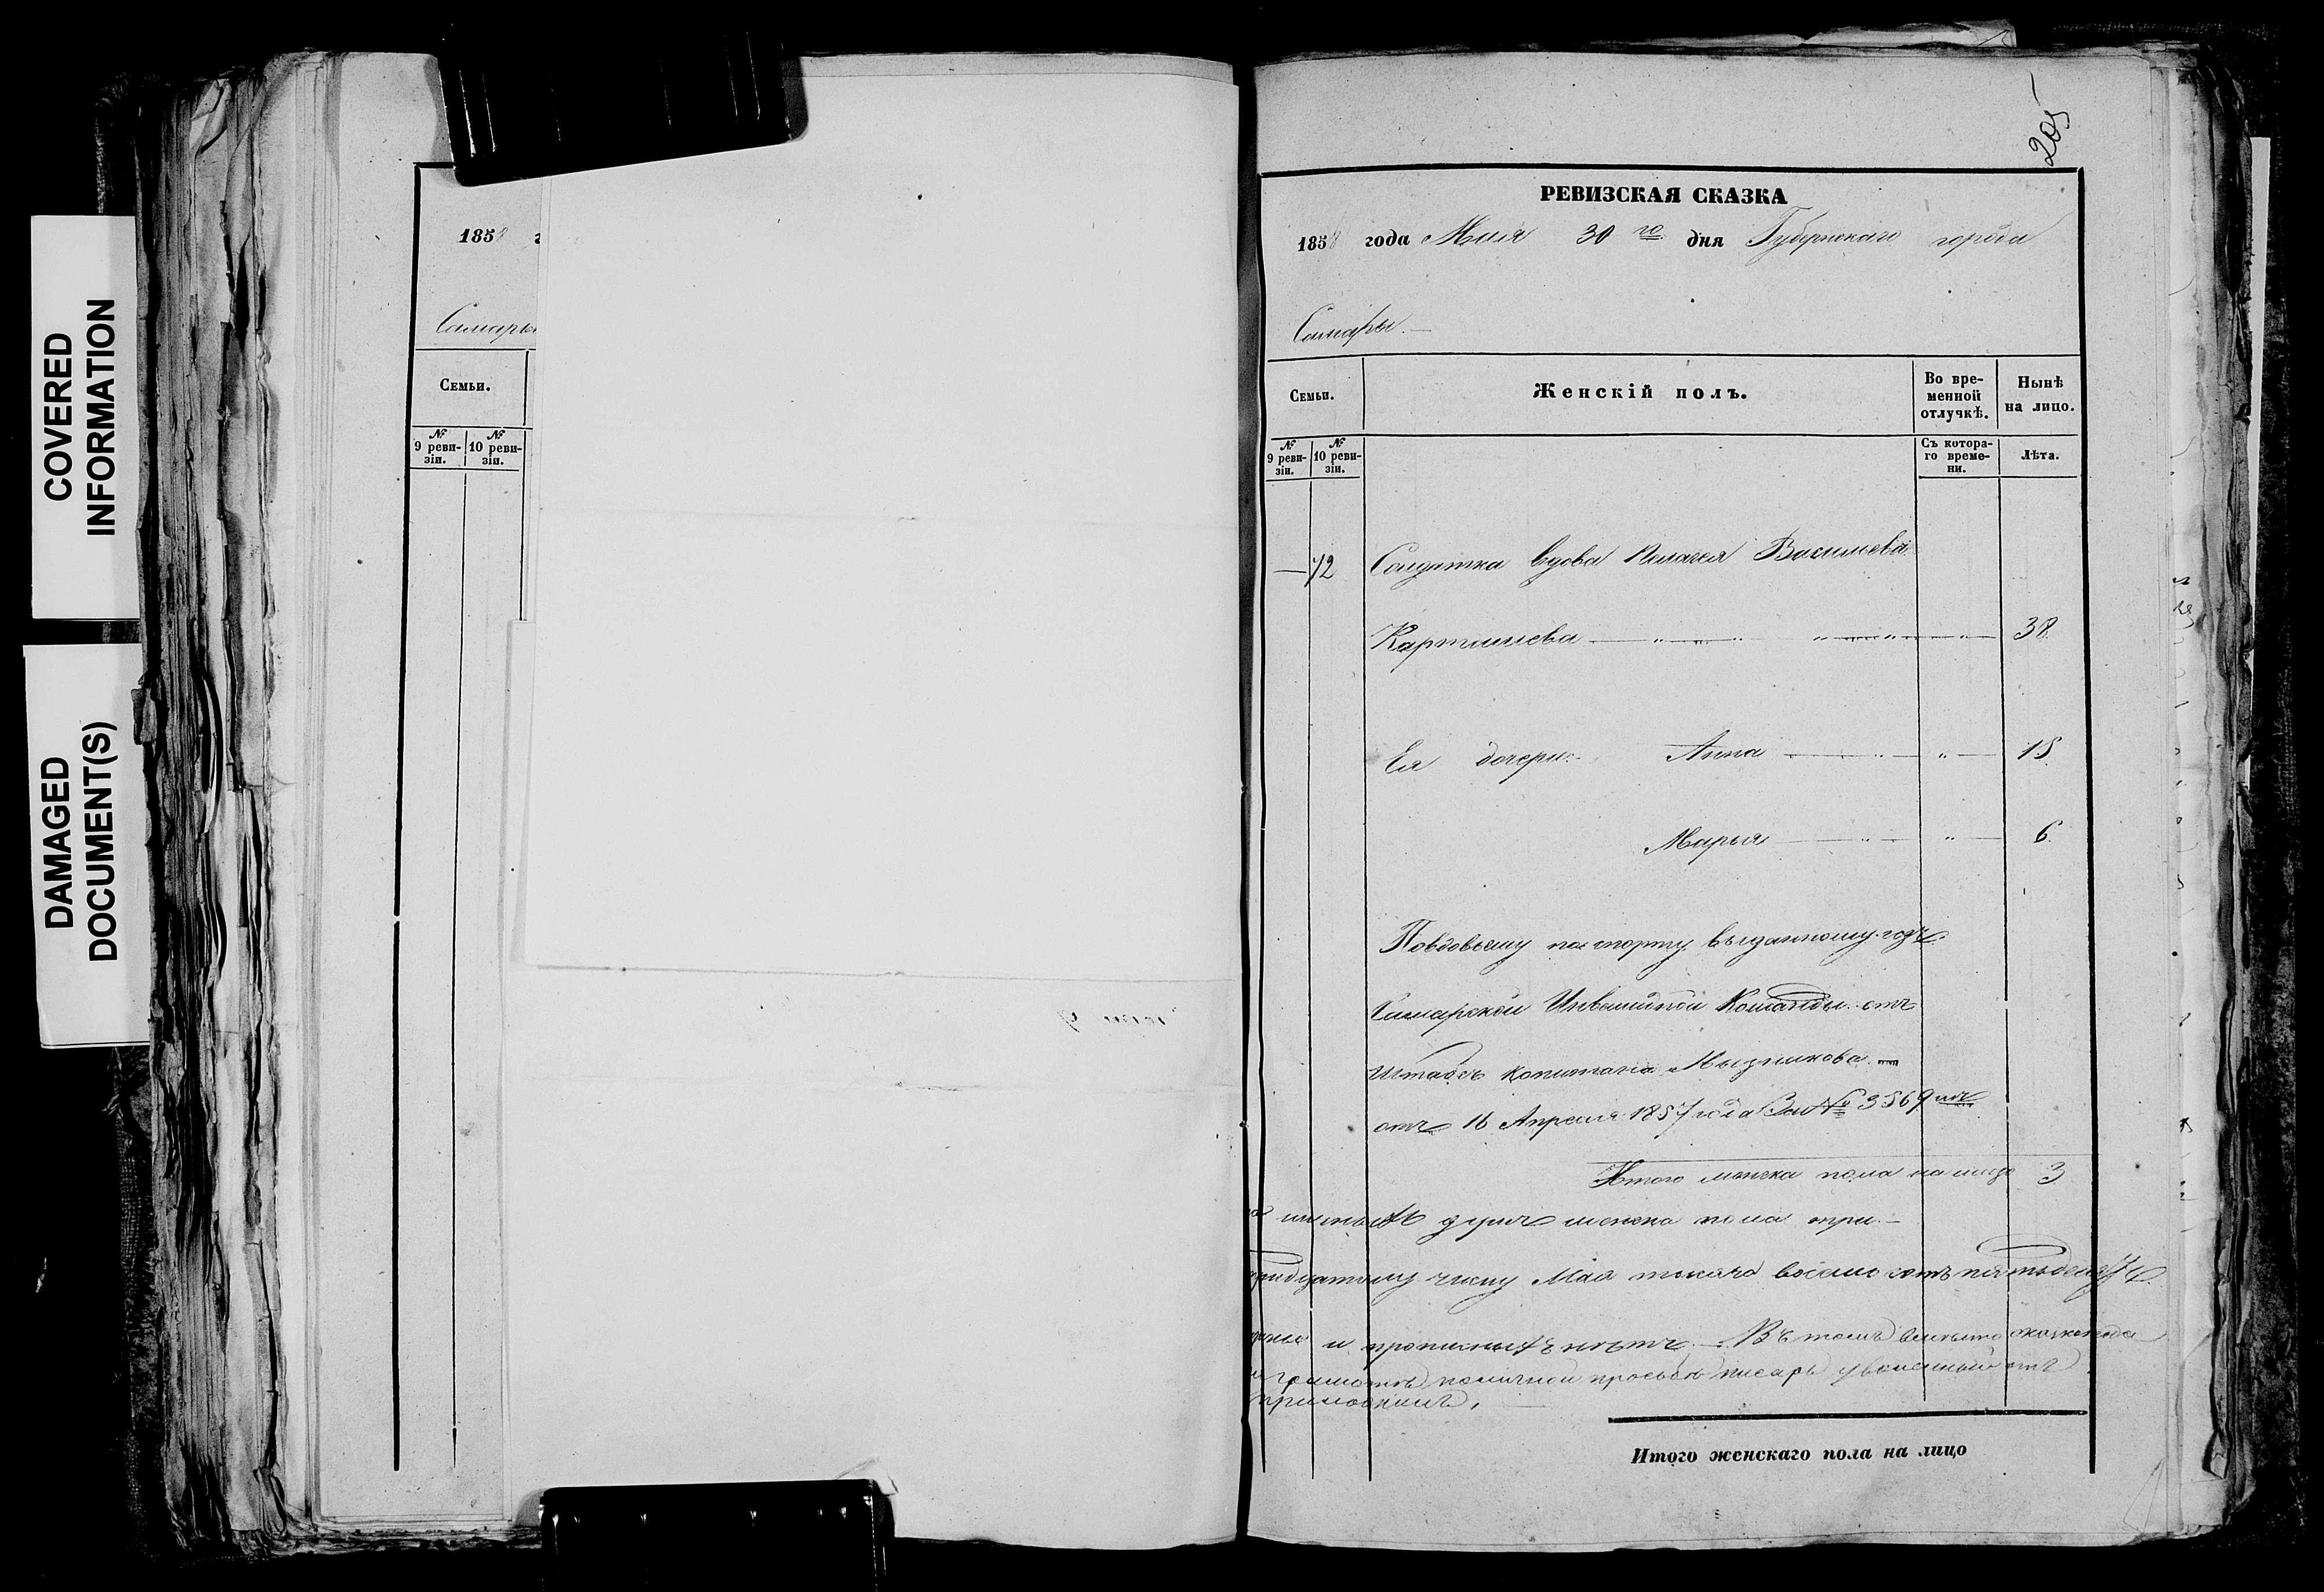 COVERED
INFORMATION
DAMAGED
DOCUMENT(S)
1858 г
Самары
Семьи.
№ 9 реви-зіи. № 10 реви-зіи.
205
РЕВИЗСКАЯ СКАЗКА
1858 года Маія 30го дня Губернскаго города
Самары.
Семьи. Женскій полъ. Во вре-менной отлучкѣ. Нынѣ на лицо.
№ 9 реви-зіи. № 10 реви-зіи. Съ котора-го време-ни. Лѣта.
72 Солдатка вдова Пелагея Васильева
Карташева 38
Ея дочери: Анна 15
Марья 6
По вдовьему паспорту выданному
Самарской Инвалидной Команды отъ
Штабсъ капитана
отъ 16 Апреля 1857 года За № 3569
Итого женска пола на лицо 3
душъ женска пола три.
тридцатому числу Маія тысяча восемь сотъ пятьдесятъ
и прописныхъ нѣтъ. Въ томъ
личной просьбѣ писарь уволенный отъ
Итого женскаго пола на лицо